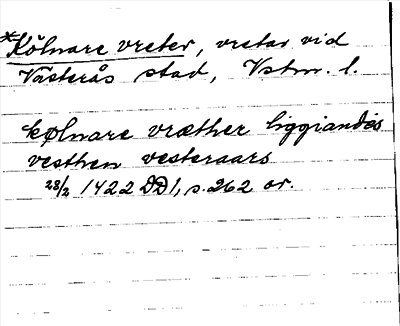 *Kölnare vreter, vretar vid
Västerås stad, Vstm. l.
kølnare vræther liggiandes
vesthen vesteraars
28/2 1422 DD1, s. 262 or.